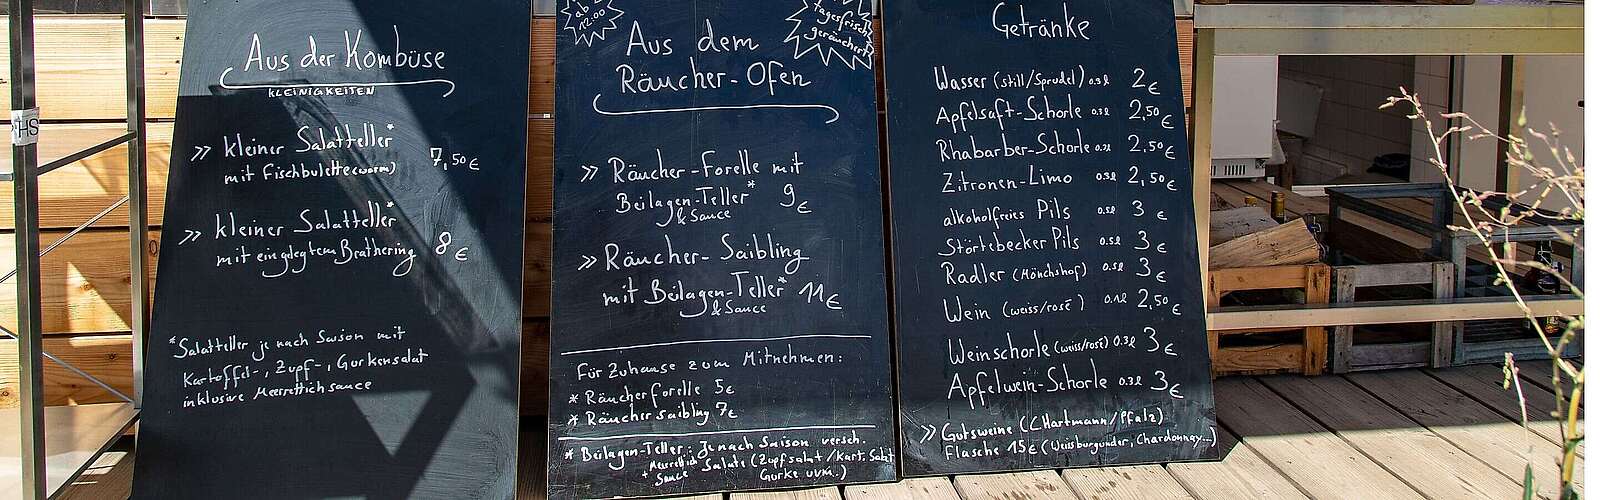 HS
Aus der Kombüse
KLEINIGKEITEN
>> kleiner Salatteller*
mit Fischbulette (warm) 7,50€
>> kleiner Salatteller*
mit eingelegtem Brathering 8€
*Salatteller je nach Saison mit
Kartoffel-, Zupf-, Gurkensalat
inklusive Meerrettichsauce
ab
12:00
tagesfrisch
geräuchert
Aus dem
Räucher-Ofen
>> Räucher-Forelle mit
Beilagen-Teller* 9€
& Sauce
>> Räucher-Saibling
mit Beilagen-Teller* 11€
& Sauce
Für Zuhause zum Mitnehmen:
* Räucherforelle 5€
* Räuchersaibling 7€
* Beilagen-Teller: Je nach Saison versch.
+ Meerrettich Salate (Zupfsalat/Kart. Salat
Sauce Gurke uvm.)
Getränke
Wasser (still/Sprudel) 0.3l 2€
Apfelsaft-Schorle 0.3l 2,50€
Rhabarber-Schorle 0.3l 2,50€
Zitronen-Limo 0.3l 2,50€
alkoholfreies Pils 0.5l 3€
Störtebecker Pils 0.5l 3€
Radler (Mönchshof) 0.5l 3€
Wein (weiss/rosé) 0.1l 2,50€
Weinschorle (weiss/rosé) 0.3l 3€
Apfelwein-Schorle 0.3l 3€
>> Gutsweine (C. Hartmann/Pfalz)
Flasche 15€ (Weissburgunder, Chardonnay...)